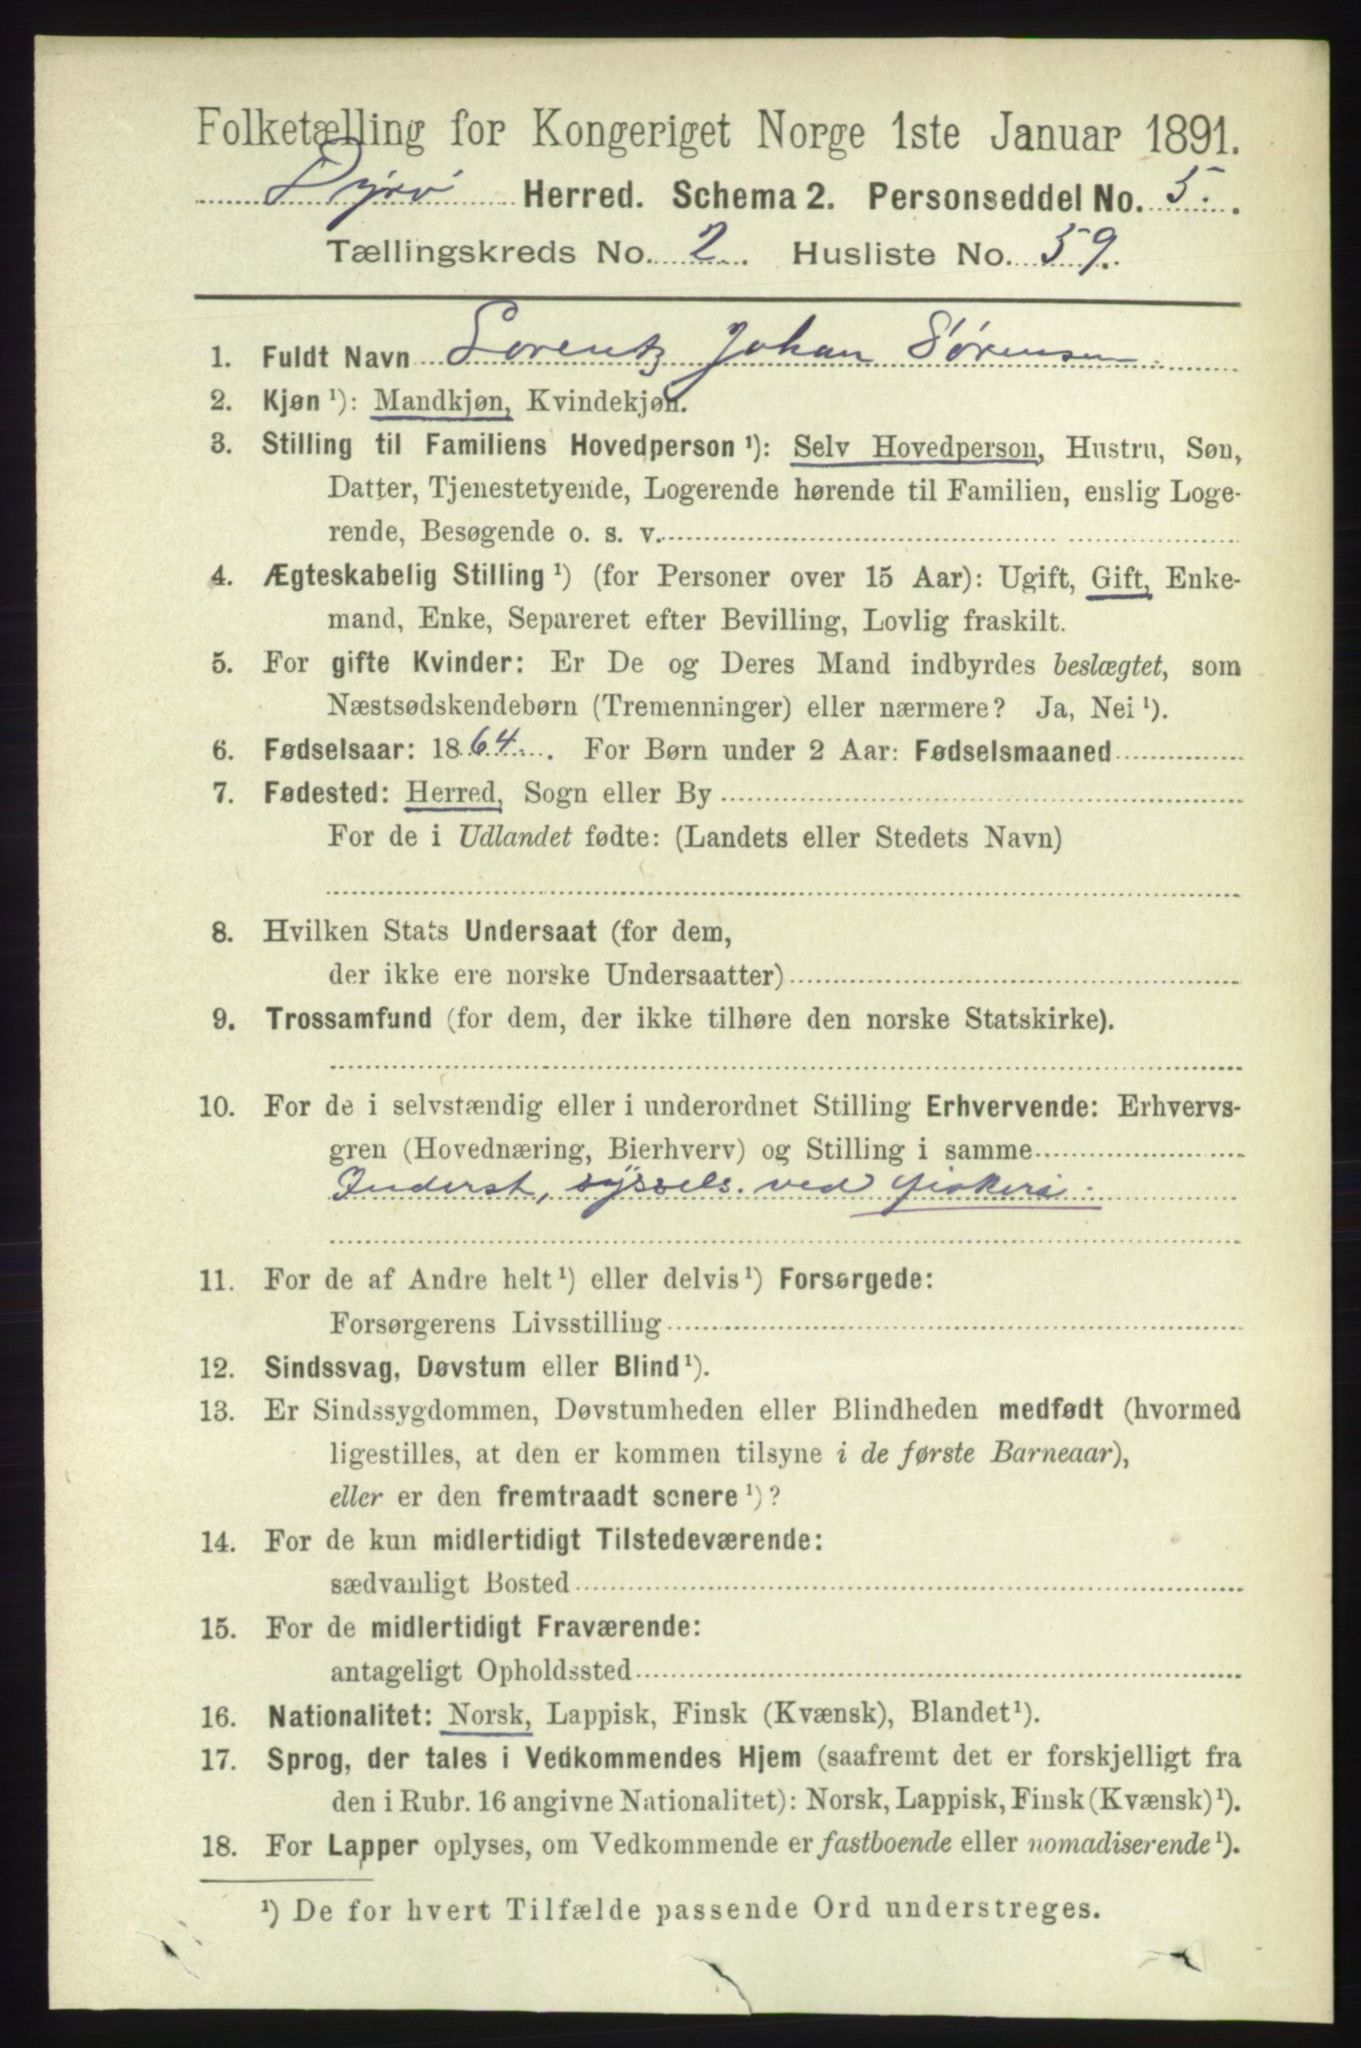 Folketælling for Kongeriget Norge 1ste Januar 1891.
Dyrø Herred. Schema 2. Personseddel No. 5.
Tællingskreds No. 2. Husliste No. 59.
1. Fuldt Navn Lorentz Johan Sørensen
2. Kjøn ¹): Mandkjøn, Kvindekjøn.
3. Stilling til Familiens Hovedperson ¹): Selv Hovedperson, Hustru, Søn,
Datter, Tjenestetyende, Logerende hørende til Familien, enslig Loge-
rende, Besøgende o. s. v.
4. Ægteskabelig Stilling ¹) (for Personer over 15 Aar): Ugift, Gift, Enke-
mand, Enke, Separeret efter Bevilling, Lovlig fraskilt.
5. For gifte Kvinder: Er De og Deres Mand indbyrdes beslægtet, som
Næstsødskendebørn (Tremenninger) eller nærmere? Ja, Nei ¹).
6. Fødselsaar: 1864. For Børn under 2 Aar: Fødselsmaaned
7. Fødested: Herred, Sogn eller By
For de i Udlandet fødte: (Landets eller Stedets Navn)
8. Hvilken Stats Undersaat (for dem,
der ikke ere norske Undersaatter)
9. Trossamfund (for dem, der ikke tilhøre den norske Statskirke).
10. For de i selvstændig eller i underordnet Stilling Erhvervende: Erhvervs-
gren (Hovednæring, Bierhverv) og Stilling i samme
Inderst, syssels. ved fiskeri.
11. For de af Andre helt ¹) eller delvis ¹) Forsørgede:
Forsørgerens Livsstilling
12. Sindssvag, Døvstum eller Blind ¹).
13. Er Sindssygdommen, Døvstumheden eller Blindheden medfødt (hvormed
ligestilles, at den er kommen tilsyne i de første Barneaar),
eller er den fremtraadt senere ¹)?
14. For de kun midlertidigt Tilstedeværende:
sædvanligt Bosted
15. For de midlertidigt Fraværende:
antageligt Opholdssted
16. Nationalitet: Norsk, Lappisk, Finsk (Kvænsk), Blandet ¹).
17. Sprog, der tales i Vedkommendes Hjem (saafremt det er forskjelligt fra
den i Rubr. 16 angivne Nationalitet): Norsk, Lappisk, Finsk (Kvænsk) ¹).
18. For Lapper oplyses, om Vedkommende er fastboende eller nomadiserende ¹).
¹) De for hvert Tilfælde passende Ord understreges.